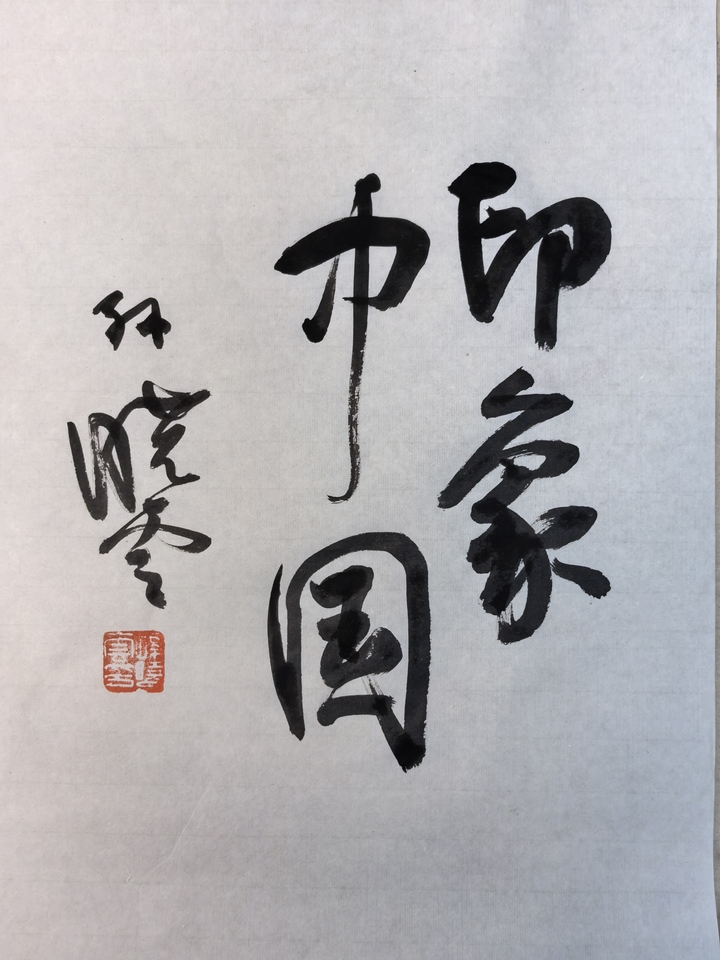 印象
中国
孙晓云